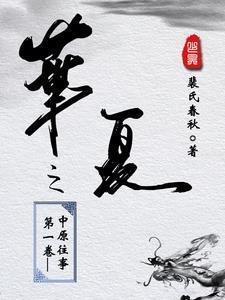 華
夏
之
中原往事
第一卷—
裴氏春秋◎著